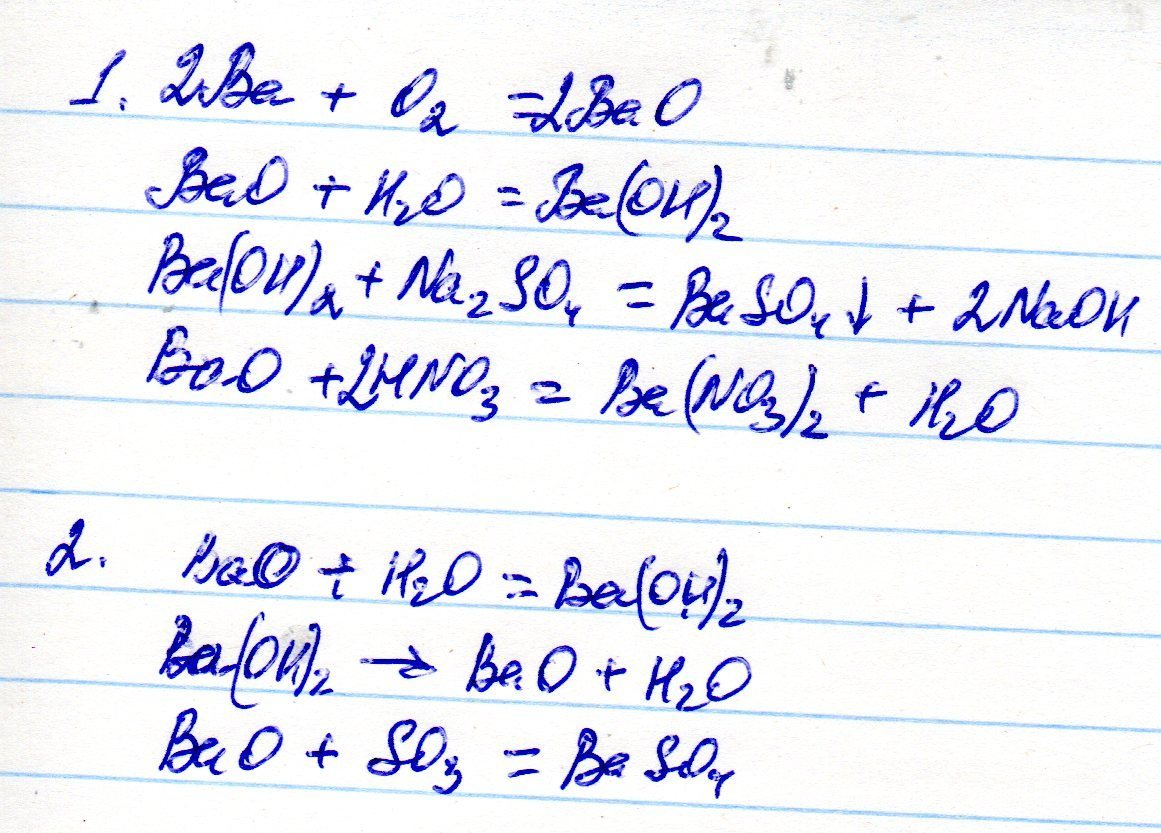 1. 2Ba + O₂ = 2BaO
BaO + H₂O = Ba(OH)₂
Ba(OH)₂ + Na₂SO₄ = BaSO₄↓ + 2NaOH
BaO + 2HNO₃ = Ba(NO₃)₂ + H₂O
2. BaO + H₂O = Ba(OH)₂
Ba(OH)₂ → BaO + H₂O
BaO + SO₃ = BaSO₄